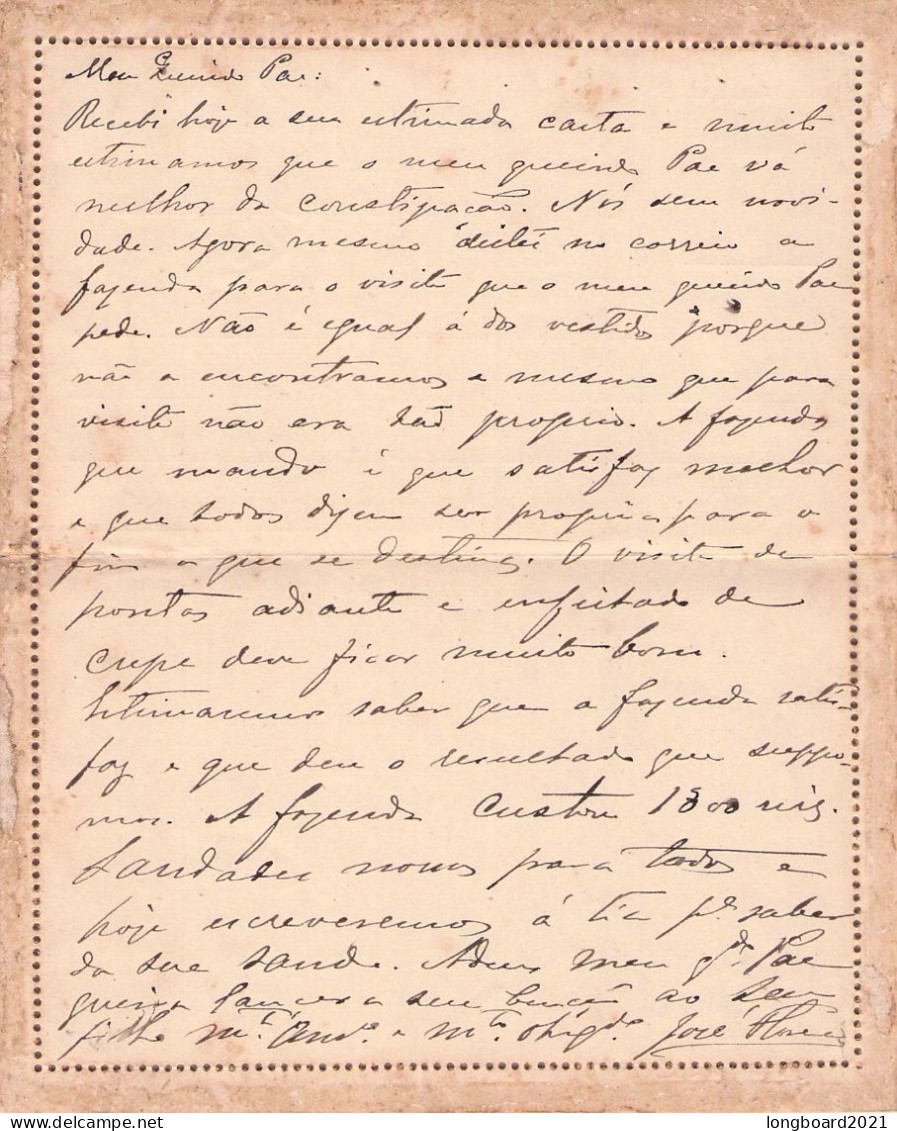 Meu Querido Pae:
Recebi hoje a sua estimada carta e muito
estimamos que o meu querido Pae vá
melhor da constipação. Nós sem novi-
dade. Agora mesmo deitei no correio a
fazenda para o visite que o meu querido Pae
pede. Não é egual á dos vestidos porque
não a encontramos e mesmo que para
visite não era tão proprio. A fazenda
que mando é que satisfaz melhor
e que todos dizem ser propria para o
fim a que se destina. O visite de
pontas adiante e enfeitado de
crepe deve ficar muito bom.
Estimaremos saber que a fazenda satis-
faz e que deu o resultado que suppo-
mos. A fazenda custou 1800 reis.
Saudades nossas para todos e
hoje escreveremos á tia pª saber
da sua saude. Adeus meu qdº Pae
queira lançar a sua benção ao seu
filho mtº amº e mtº obrigdº José
longboard2021